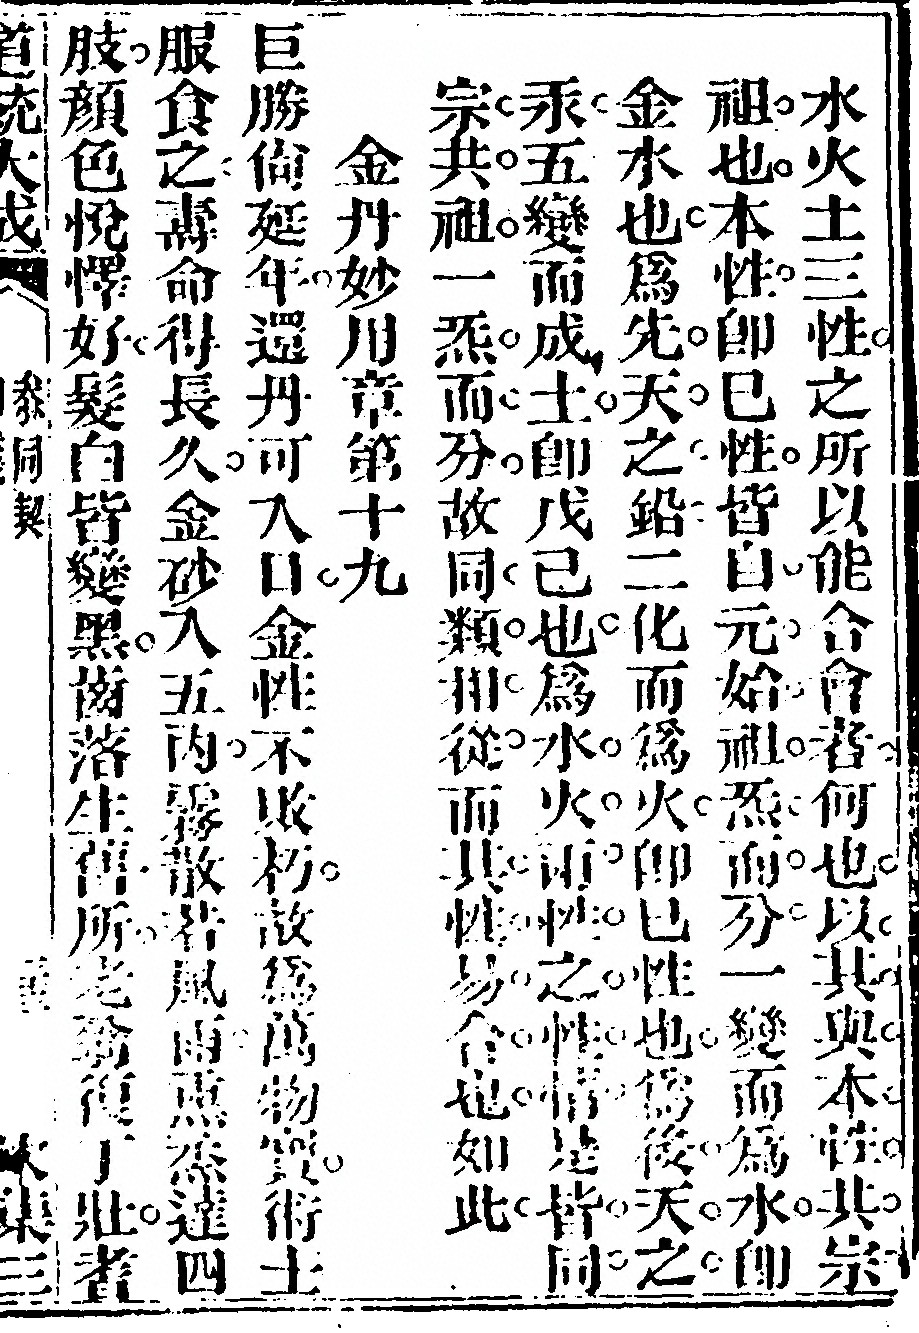 水火土三性之所以能合會者何也以其與本性共宗
祖也本性卽巳性皆自元始祖炁而分一變而為水卽
金水也爲先天之鉛二化而爲火卽巳性也爲後天之
汞五變而成土卽戊己也爲水火兩性之性情是皆同
宗共祖一炁而分故同類相從而其性易合也如此
金丹妙用章第十九
巨勝尙延年還丹可入口金性不敗朽故爲萬物寶術士
服食之壽命得長久金砂入五內霧散若風雨熏烝達四
肢顏色悅懌好髮白皆變黑齒落生舊所老翁復丁壯耆
道統大成
參同契
水集三